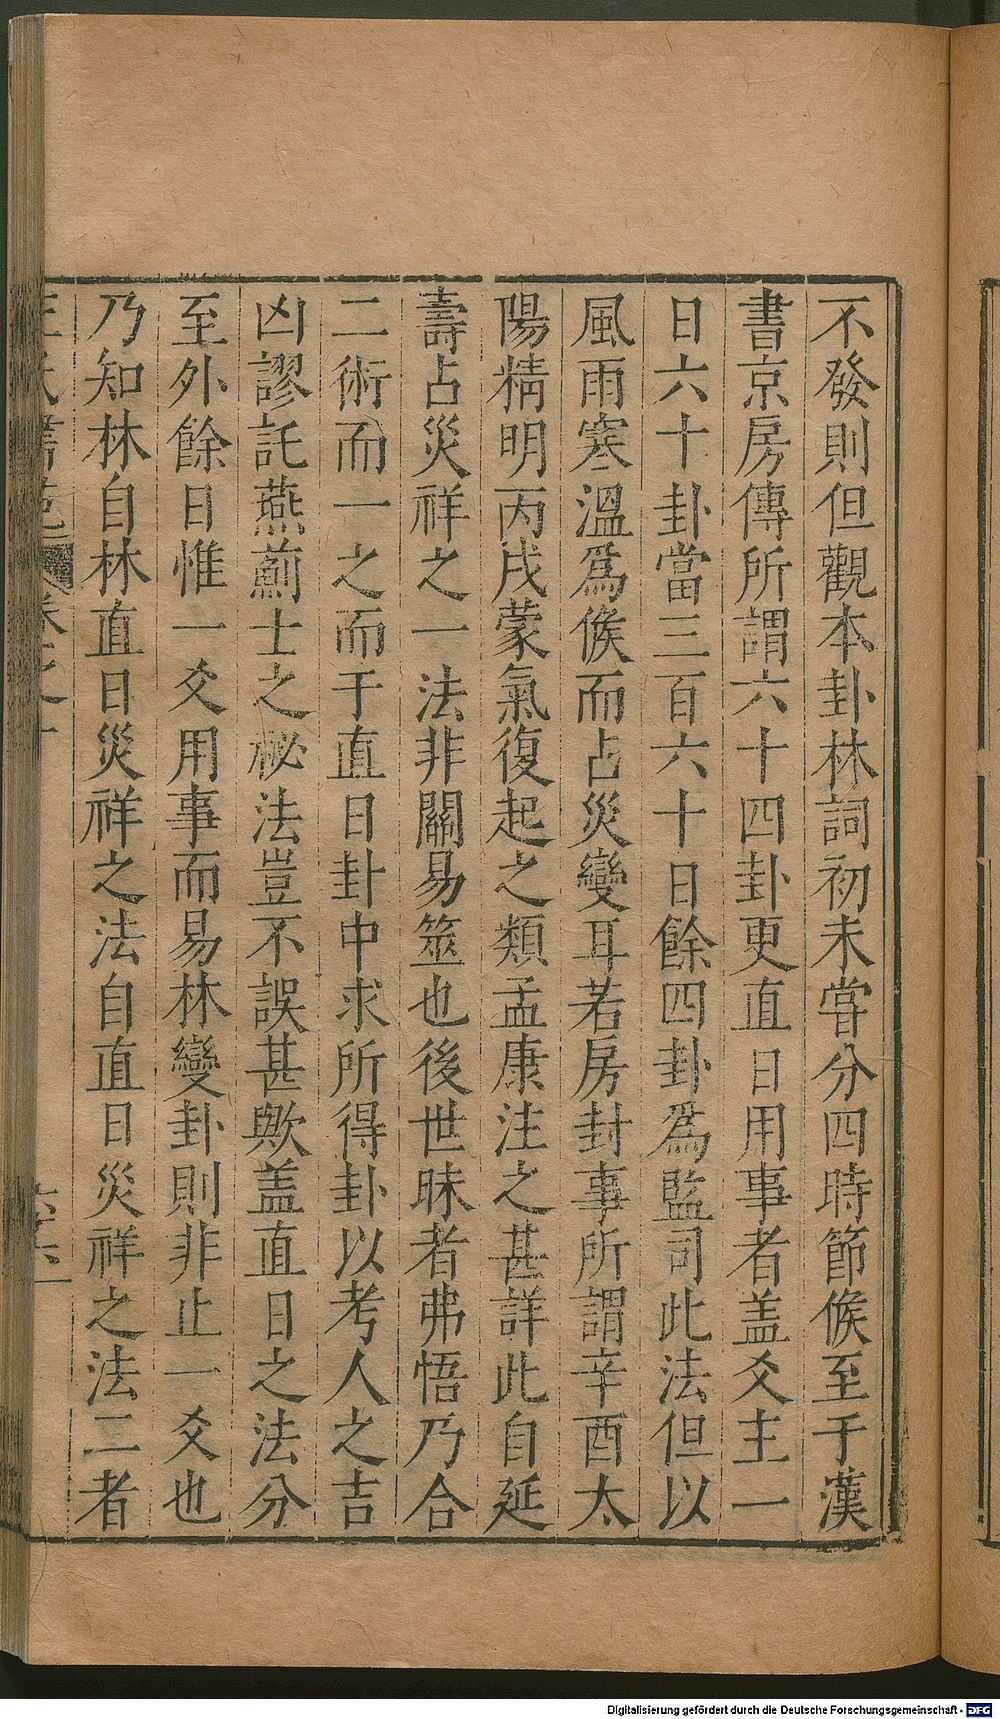 不發則但觀本卦林詞初未嘗分四時節候至于漢
書京房傳所謂六十四卦更直日用事者盖爻主一
日六十卦當三百六十日餘四卦爲監司此法但以
風雨寒溫爲候而占災變耳若房封事所謂辛酉太
陽精明丙戌蒙氣復起之類孟康注之甚詳此自延
壽占災祥之一法非關易筮也後世昧者弗悟乃合
二術而一之而于直日卦中求所得卦以考人之吉
凶謬託燕薊士之祕法豈不誤甚歟盖直日之法分
至外餘日惟一爻用事而易林變卦則非止一爻也
乃知林自林直日災祥之法自直日災祥之法二者
Digitalisierung gefördert durch die Deutsche Forschungsgemeinschaft - DFG